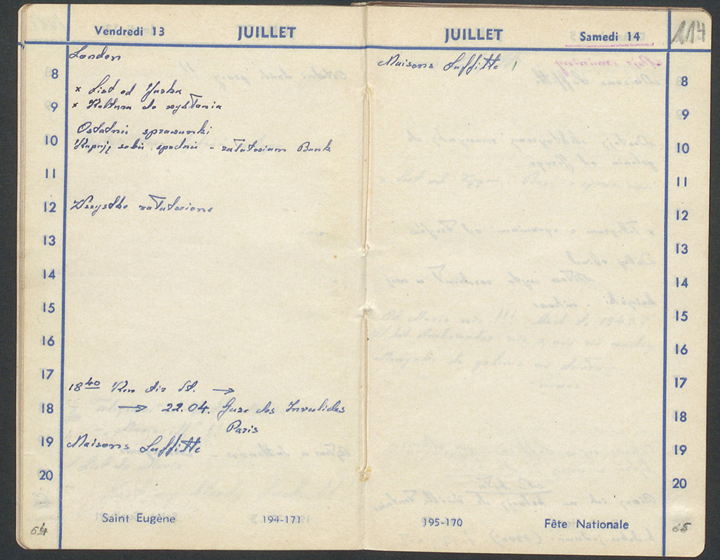 Vendredi 13 JUILLET
London
8
× List od Jurka
× Kultura do wysłania
9
Ostatnie sprawunki
10
Kupuję sobie spodnie - załatwiam Bank
11
12
Wszystko załatwione
13
14
15
16
17
18 40 Ken Air St. →
18
→ 22.04. Gare des Invalides
Paris
19
Maisons Laffitte
20
64
Saint Eugène 194-171
JUILLET Samedi 14
114
Maisons Laffitte !
8
9
10
11
12
13
14
15
16
17
18
19
20
195-170 Fête Nationale
65